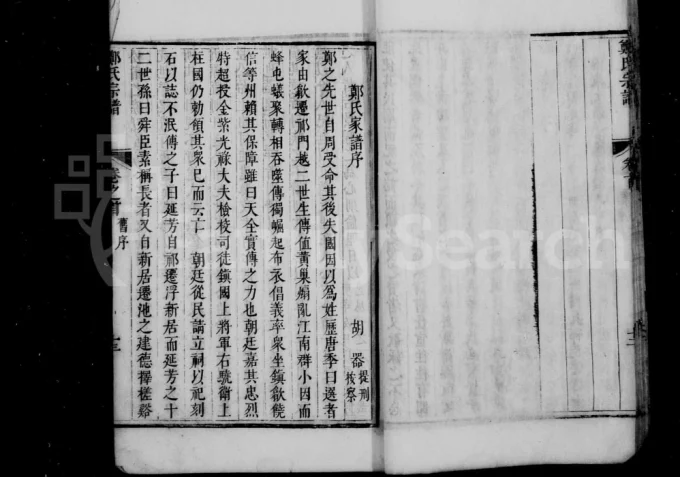 鄭氏家譜序
胡器 從刑 按察
鄭之先世自周受命其後失國因以為姓歷唐季曰選者
家由歙遷祁門越二世生傳值黃巢煽亂江南群小因而
蜂屯蟻聚轉相吞噬傳獨崛起布衣倡義率眾坐鎮歙饒
信等州賴其保障雖曰天全實傳之力也朝廷嘉其忠烈
特超投金紫光祿大夫檢校司徒鎮國上將軍右驍衛上
柱國仍勅領其眾已而云亡朝廷從民請立祠以祀刻
石以誌不泯傳之子曰延芳自祁遷浮新居而延芳之十
二世孫曰舜臣素稱長者又自新居遷池之建德擇槎谿
鄭氏宗譜
卷之首
舊序
十三
FamilySearch